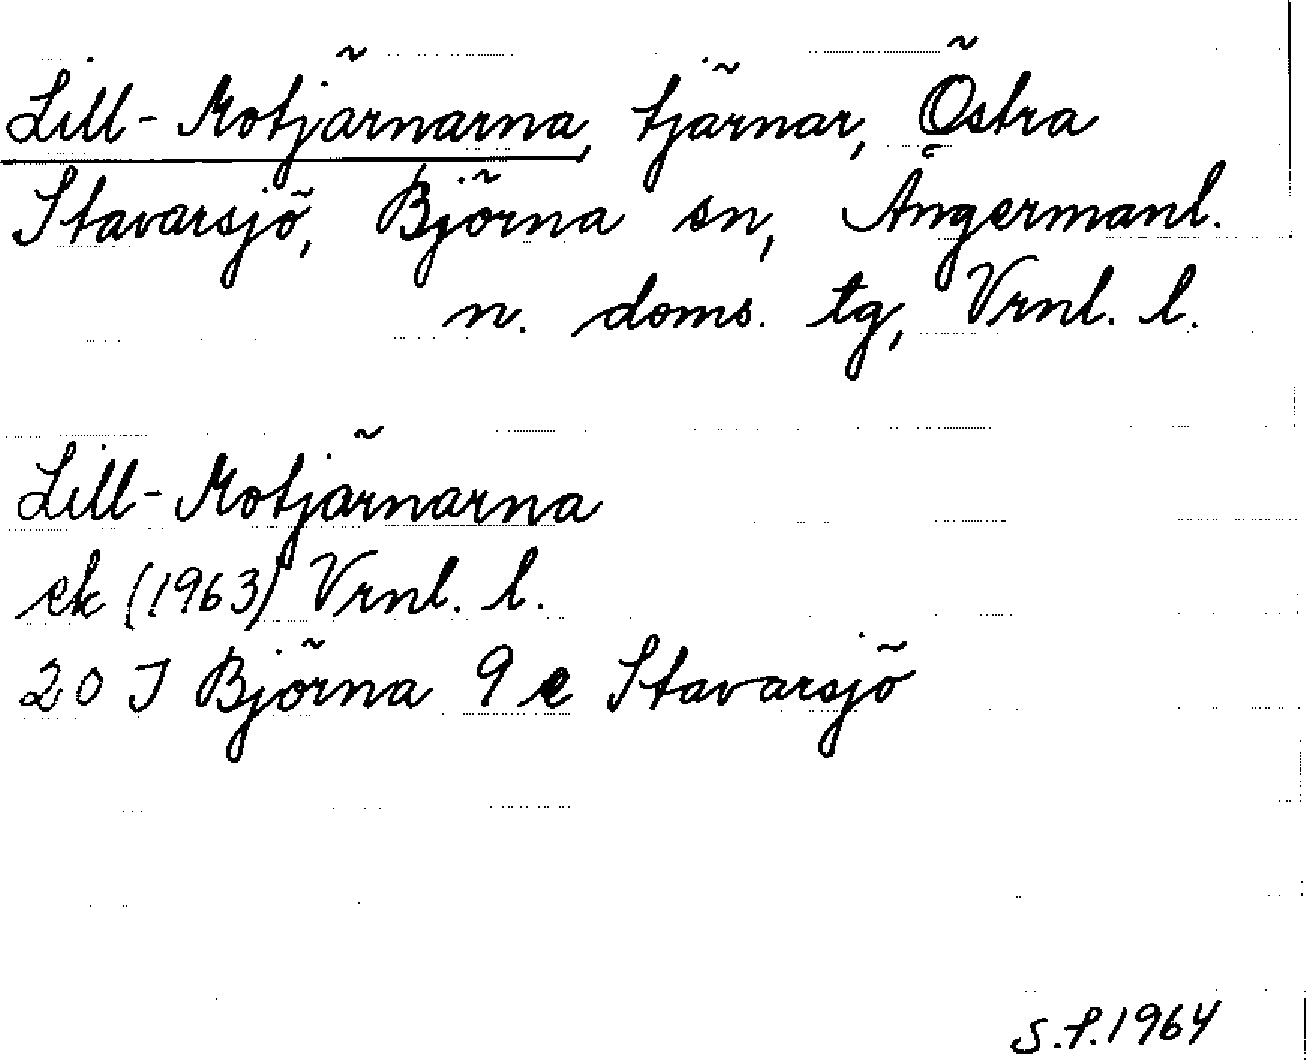 Lill-Motjärnarna, tjärnar, Östra
Stavarsjö, Björna sn, Ångermanl.
n. doms. tg, Vrnl. l.
Lill-Motjärnarna
ek (1963) Vrnl. l.
20 J Björna 9 e Stavarsjö
S.f.1964